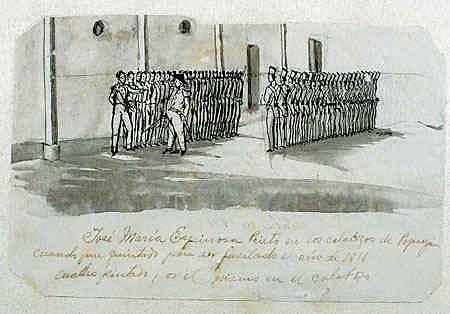 José María Espinosa Prieto en los calabozos de Popayan
cuando fue quintado para ser fusilado el año de 1816
es el mismo en el calabozo